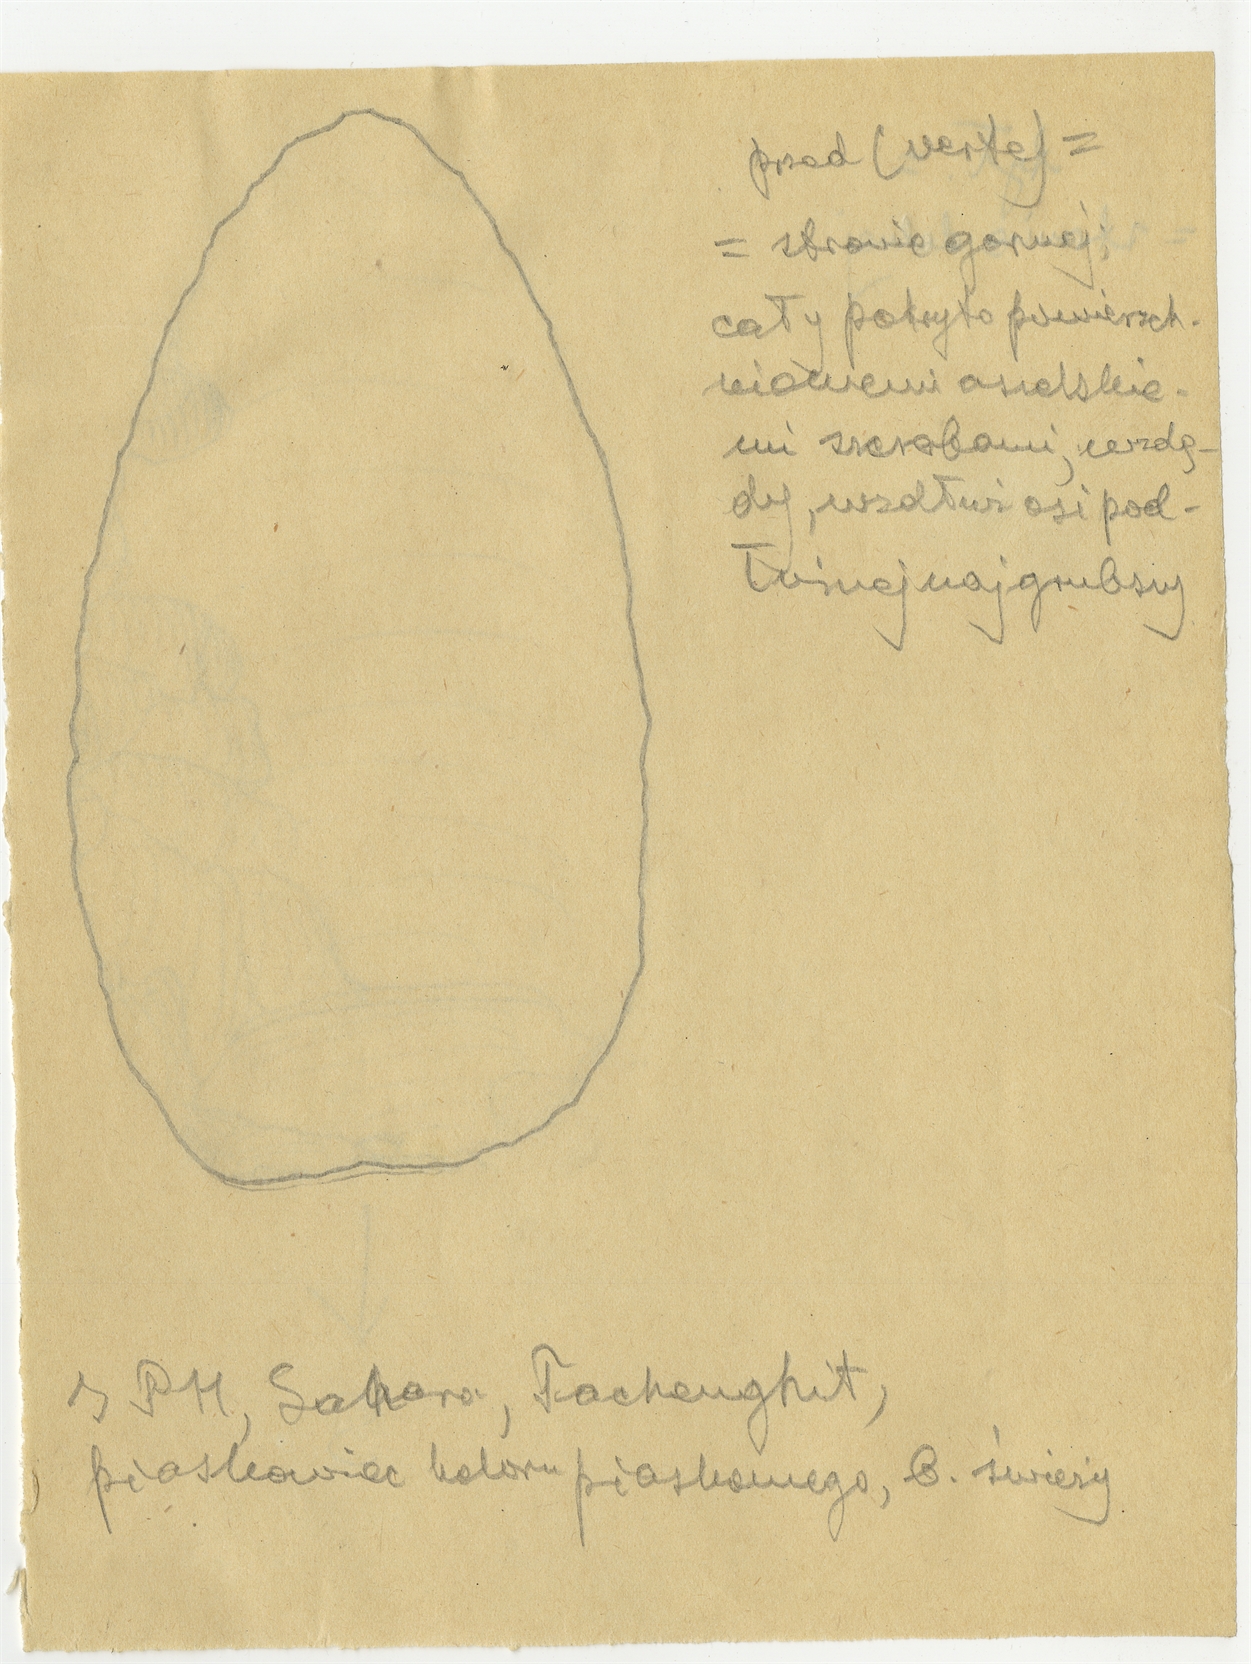 przód (verte) =
= stronie górnej:
cały pokryto powierzch-
niowemi aszelskie-
mi szczerbami, wzdę-
dy, wzdłuż osi pod-
łużnej najgrubszy
PH, Sahara, Tachenghit,
piaskowiec koloru piaskowego, b. świeży